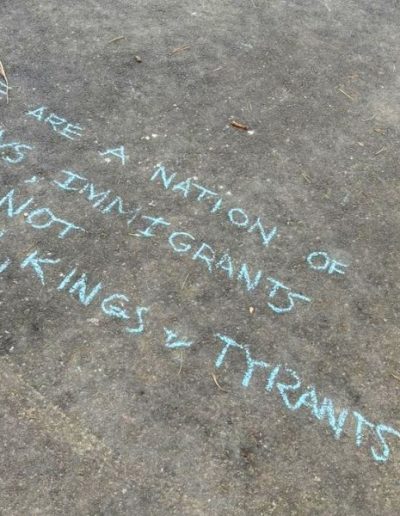 ARE A NATION OF
, IMMIGRANTS
NOT
KINGS & TYRANTS